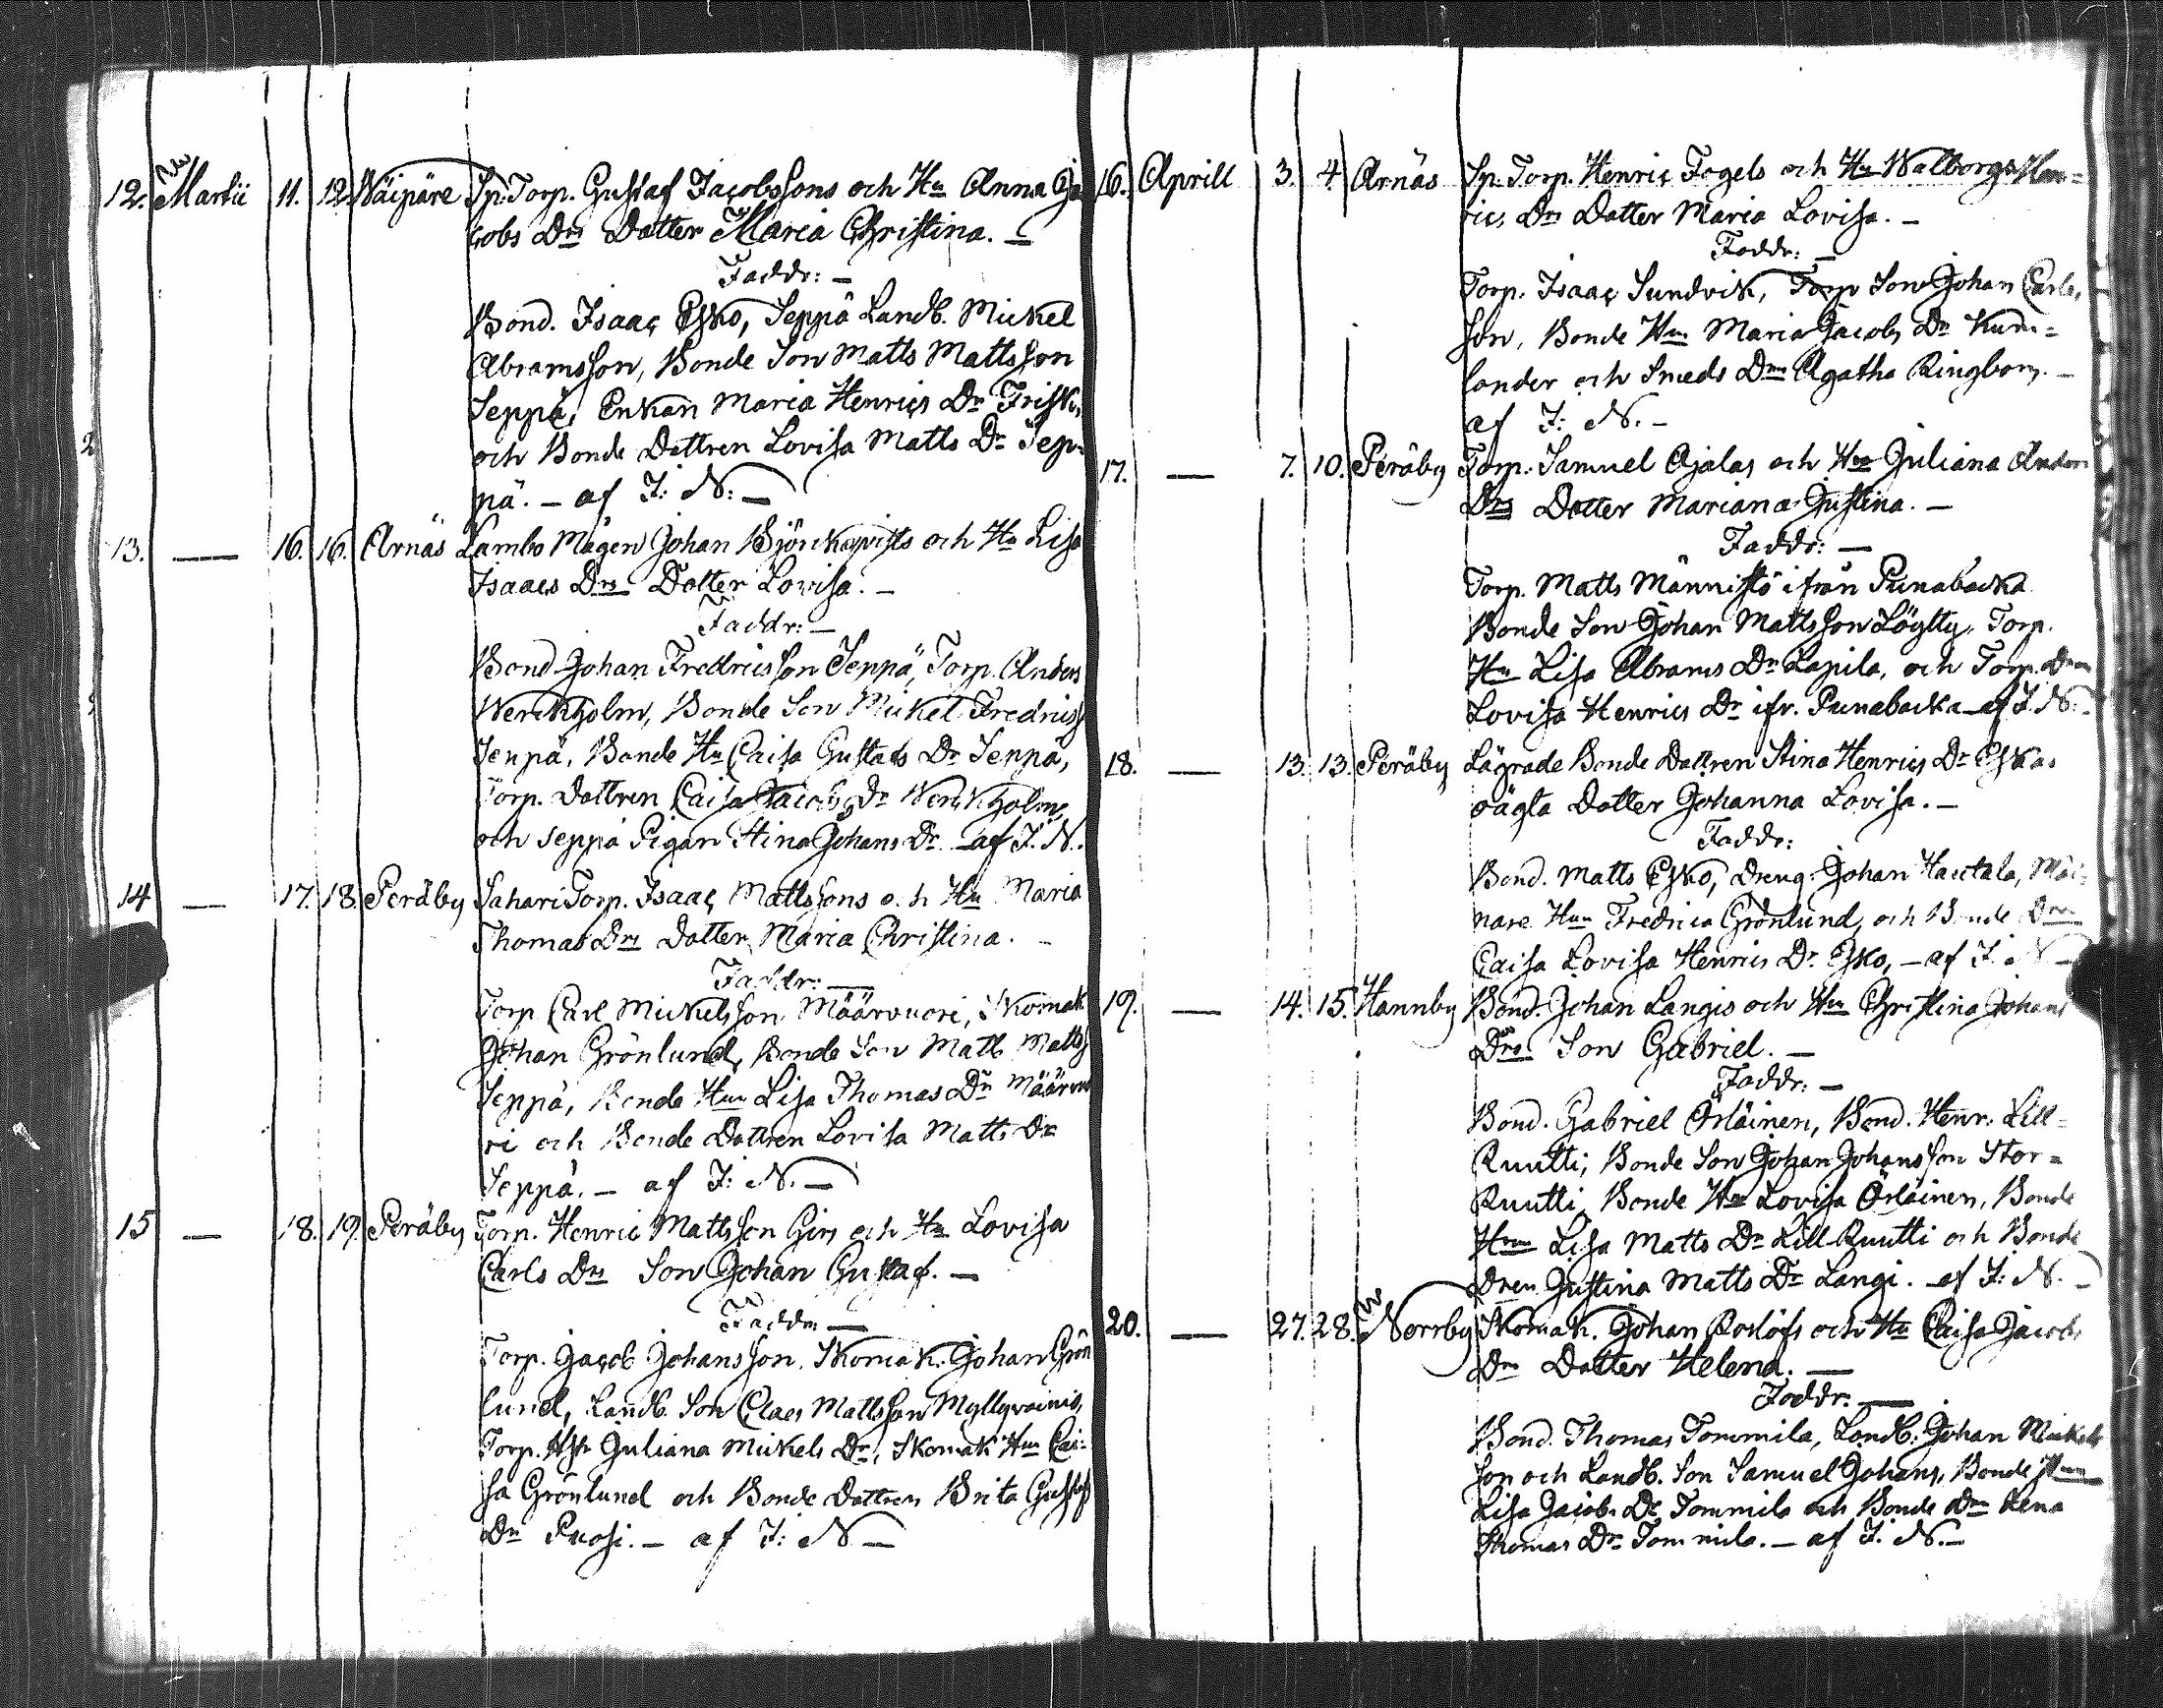 12. Martii 11. 12. Wäipäre Sp. Torp. Gustaf Jacobssons och Hu Anna Ja
cobs Drs Dotter Maria Christina. —
Faddr: —
Bond. Isaac Esko, Seppä Landb. Mickel
Abramsson, Bonde Son Matts Mattsson
Seppä, Enkan Maria Henrics Dr Frisk,
och Bonde Dottren Lovisa Matts Dr Sep-
pä. — af I: N: —
13. — 16. 16. Arnäs Lambo Mågen Johan Björckqvists och Hu Lisa
Isaacs Drs Dotter Lovisa. —
Faddr: —
Bond Johan Fredricsson Seppä, Torp. Anders
Werckholm, Bonde Son Mickel Fredricss
Seppä, Bonde Hu Caisa Gustafs Dr Seppä,
Torp. Dottren Caisa Jacobs Dr Werckholm,
och Seppä Pigan Stina Johans Dr — af I. N.
14 — 17. 18. Peräby Sahari Torp. Isaac Mattssons och Hu Maria
Thomas Drs Dotter Maria Christina. —
Faddr: —
Torp Carl Mickelsson Määrvuori, Skomak
Johan Grönlund, Bonde Son Matts Mattss
Seppä, Bonde Hun Lisa Thomas Dr Määrvu
ri och Bonde Dottren Lovisa Matts Dr
Seppä. — af I: N. —
15 — 18. 19. Peräby Torp. Henric Mattsson Girs och Hu Lovisa
Carls Drs Son Johan Gustaf. —
Faddr: —
Torp. Jacob Johansson, Skomak. Johan Grön
lund, Landb. Son Claes Mattsson Myllyvainio,
Torp. Juliana Mickels Dr, Skomak Hun Cai-
sa Grönlund och Bonde Dottren Brita Gustafs
Dr Puosi. — af I: N —
16. Aprill 3. 4. Arnäs Sp. Torp. Henric Fogels och Hu Walborgs Hen-
rics Drs Dotter Maria Lovisa. —
Faddr: —
Torp. Isaac Sundvik, Torp Son Johan Carls
son, Bonde Hun Maria Jacobs Dr Kum-
lander och Smeds Dren Agatha Ringbom. —
af I: N. —
17. — 7. 10. Peräby Torp. Samuel Ojalas och Hus Juliana Anders
Drs Dotter Mariana Justina. —
Faddr: —
Torp. Matts Männistö ifrån Punabacka
Bonde Son Johan Mattsson Löytty, Torp.
Hu Lisa Abrams Dr Lapila, och Torp. Dren
Lovisa Henrics Dr ifr. Punabacka — af I. N. —
18. — 13. 13. Peräby Lägrade Bonde Dottren Stina Henrics Dr Eskos
oägta Dotter Johanna Lovisa. —
Faddr:
Bond. Matts Esko, Dreng Johan Hautala,
nare Hun Fredrica Grönlund, och Bonde Dren
Caisa Lovisa Henrics Dr Esko, — af I. N —
19. — 14. 15. Hannby Bond. Johan Langis och Hus Christina Johans
Drs Son Gabriel. —
Faddr: —
Bond. Gabriel Örläinen, Bond. Henr: Lill-
Ruutti, Bonde Son Johan Johansson Stor-
Ruutti, Bonde Hu Lovisa Örläinen, Bonde
Hun Lisa Matts Dr Lill Ruutti och Bonde
Dren Justina Matts Dr Langi. — af I: N. —
20. — 27. 28. Norrby Skomak. Johan Roslöfs och Hu Caisa Jacobs
Drs Dotter Helena. —
Faddr. —
Bond. Thomas Tommila, Landb. Johan Mickels
son och Landb. Son Samuel Johanss, Bonde Hun
Lisa Jacobs Dr Tommila och Bonde Dren Lena
Thomas Dr Tommila. — af I. N. —